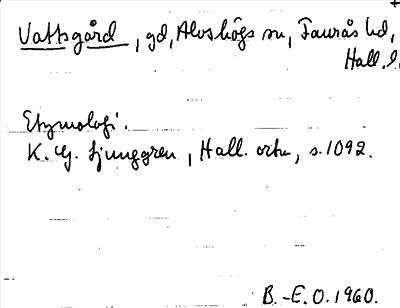 Vattsgård, gd, Alvshögs sn, Faurås hd,
Hall. l.
Etymologi.
K. G. Ljunggren, Hall. ortn, s. 1092.
B.-E. O. 1960.